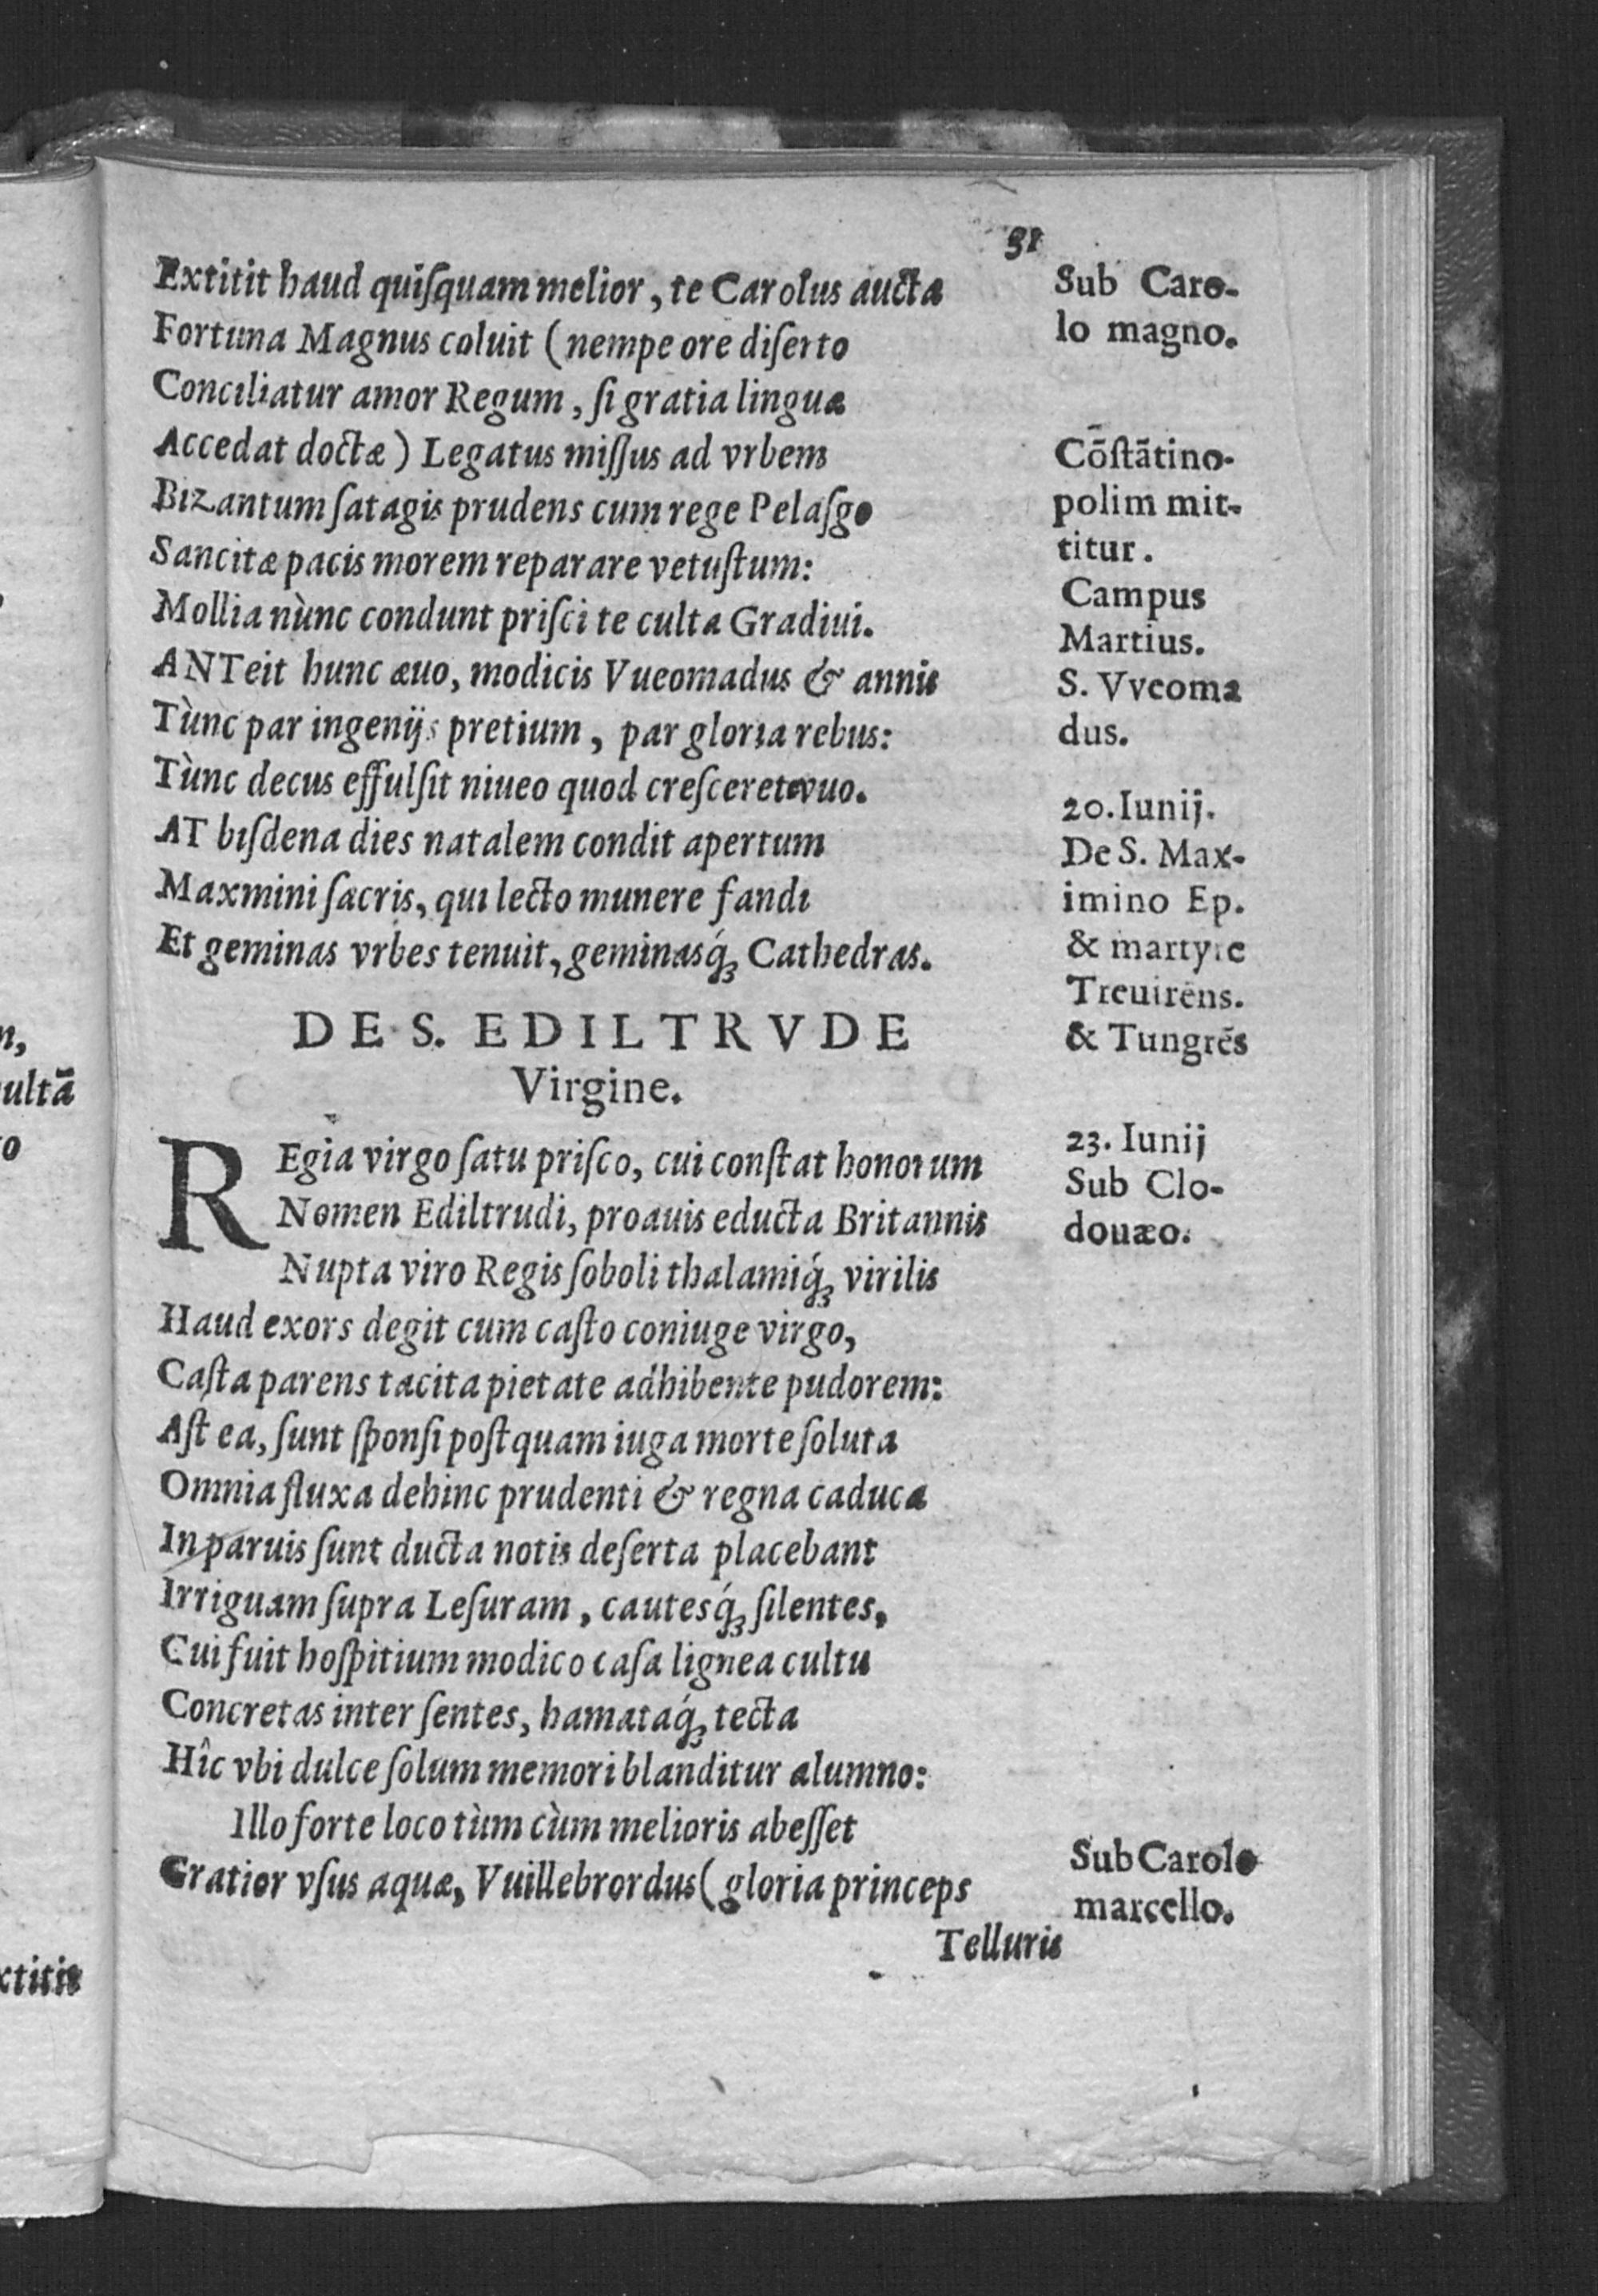 31
Extitit haud quiſquam melior, te Carolus aucta
Fortuna Magnus coluit (nempe ore diſerto
Conciliatur amor Regum, ſi gratia linguæ
Accedat doctæ) Legatus miſſus ad vrbem
Bizantum ſatagis prudens cum rege Pelaſgo
Sancitæ pacis morem reparare vetuſtum:
Mollia nùnc condunt priſci te culta Gradiui.
ANTeit hunc æuo, modicis Vueomadus & annis
Tùnc par ingenijs pretium, par gloria rebus:
Tùnc decus effulſit niueo quod creſceret æuo.
AT biſdena dies natalem condit apertum
Maxmini ſacris, qui lecto munere fandi
Et geminas vrbes tenuit, geminasq́ꝫ Cathedras.
DE S. EDILTRVDE
Virgine.
REgia virgo ſatu priſco, cui conſtat honorum
Nomen Ediltrudi, proauis educta Britannis
Nupta viro Regis ſoboli thalamiq́ꝫ virilis
Haud exors degit cum caſto coniuge virgo,
Caſta parens tacita pietate adhibente pudorem:
Aſt ea, ſunt ſponſi poſtquam iuga morte ſoluta
Omnia fluxa dehinc prudenti & regna caduca
In paruis ſunt ducta notis deſerta placebant
Irriguam ſupra Leſuram, cautesq́ꝫ ſilentes,
Cui fuit hoſpitium modico caſa lignea cultu
Concretas inter ſentes, hamataq́ꝫ tecta
Hîc vbi dulce ſolum memori blanditur alumno:
Illo forte loco tùm cùm melioris abeſſet
Gratior vſus aquæ, Vuillebrordus (gloria princeps
Telluris
Sub Caro-
lo magno.
Cõſtãtino-
polim mit-
titur.
Campus
Martius.
S. Vveoma
dus.
20. Iunij.
De S. Max-
imino Ep.
& martyre
Treuirēns.
& Tungrẽs
23. Iunij
Sub Clo-
douæo.
Sub Carolo
marcello.
n,
ultã
o
xtitit